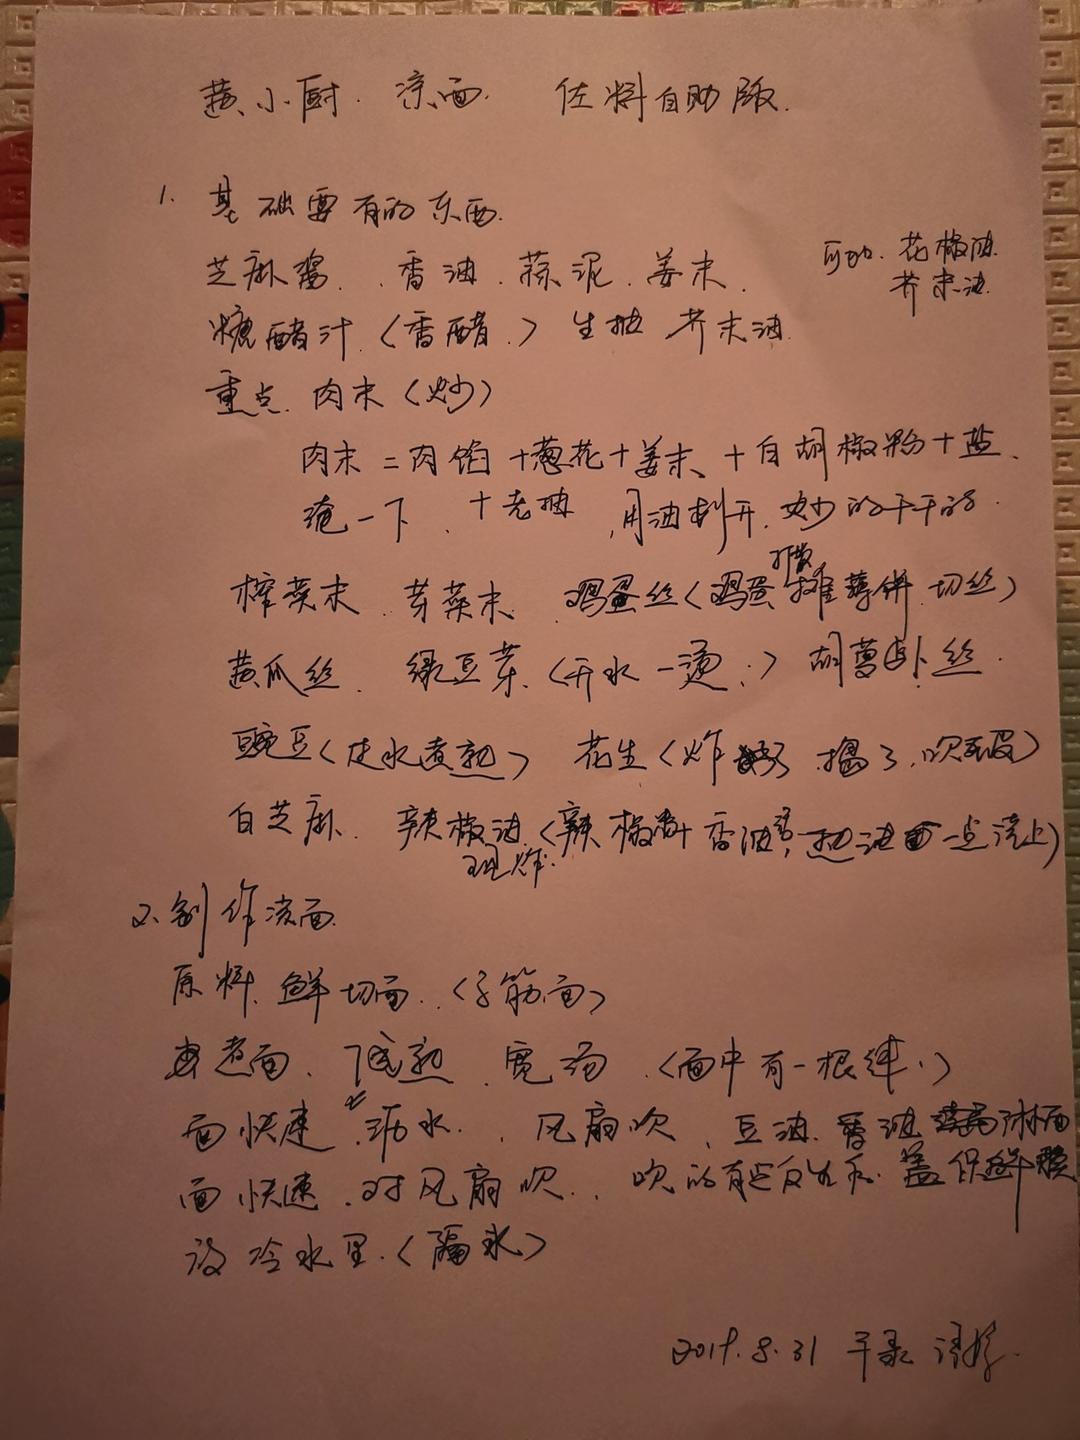 黄小厨. 凉面. 佐料自助版.
1. 基础要有的东西.
芝麻酱、香油、蒜泥、姜末、
可加、花椒油
芥末油
糖醋汁(香醋、)生抽 芥末油
重点、肉末(炒)
肉末=肉馅+葱花+姜末、+白胡椒粉+盐、
腌一下、+老抽,用油划开,炒的干干的.
榨菜末、芽菜末、鸡蛋丝(鸡蛋打散摊薄饼、切丝)
黄瓜丝、绿豆芽、(开水一烫、)胡萝卜丝.
豌豆(焯水煮熟) 花生(炸、搓了、吹皮)
白芝麻、辣椒油、(辣椒 香油,热油一点浇上)
现炸.
2、制作凉面.
原料、鲜切面、(筋面)
煮面、熟、宽汤、(面中有一根线、)
面快速沥水、风扇吹、豆油、香油 淋面
面快速、对风扇吹、吹的有点、盖保鲜膜
放冷水里、(隔水)
2019.8.31